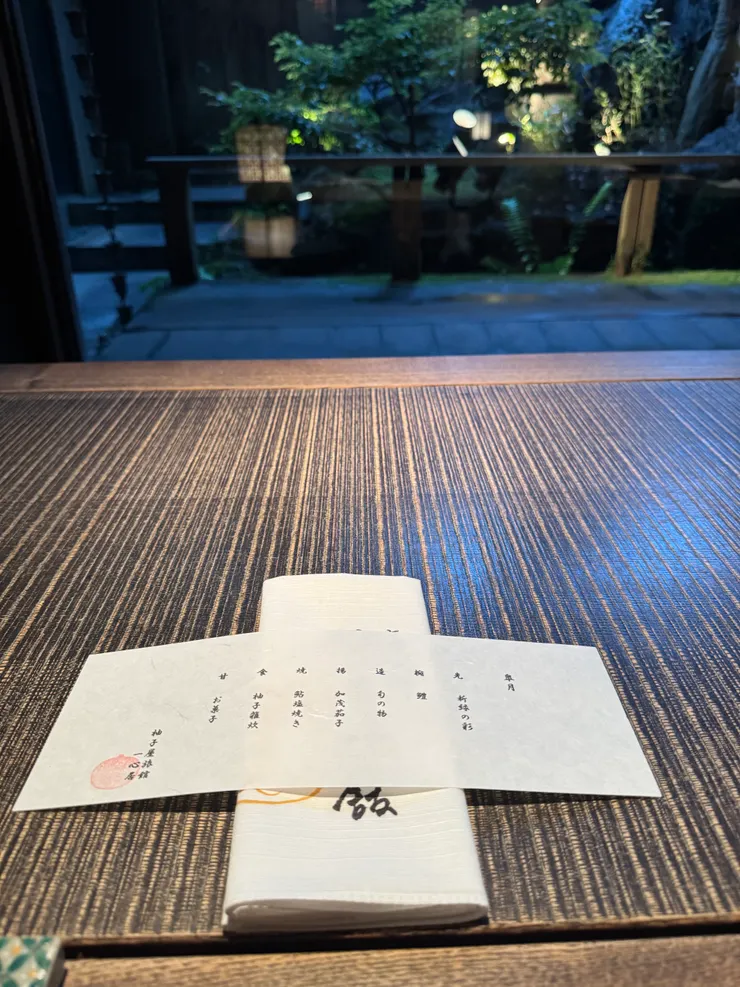 皐月
先 新緑の彩
椀 鱧
造 旬の物
揚 加茂茄子
焼 鮎塩焼き
食 柚子雑炊
甘 お菓子
柚子屋旅館
一心居
館